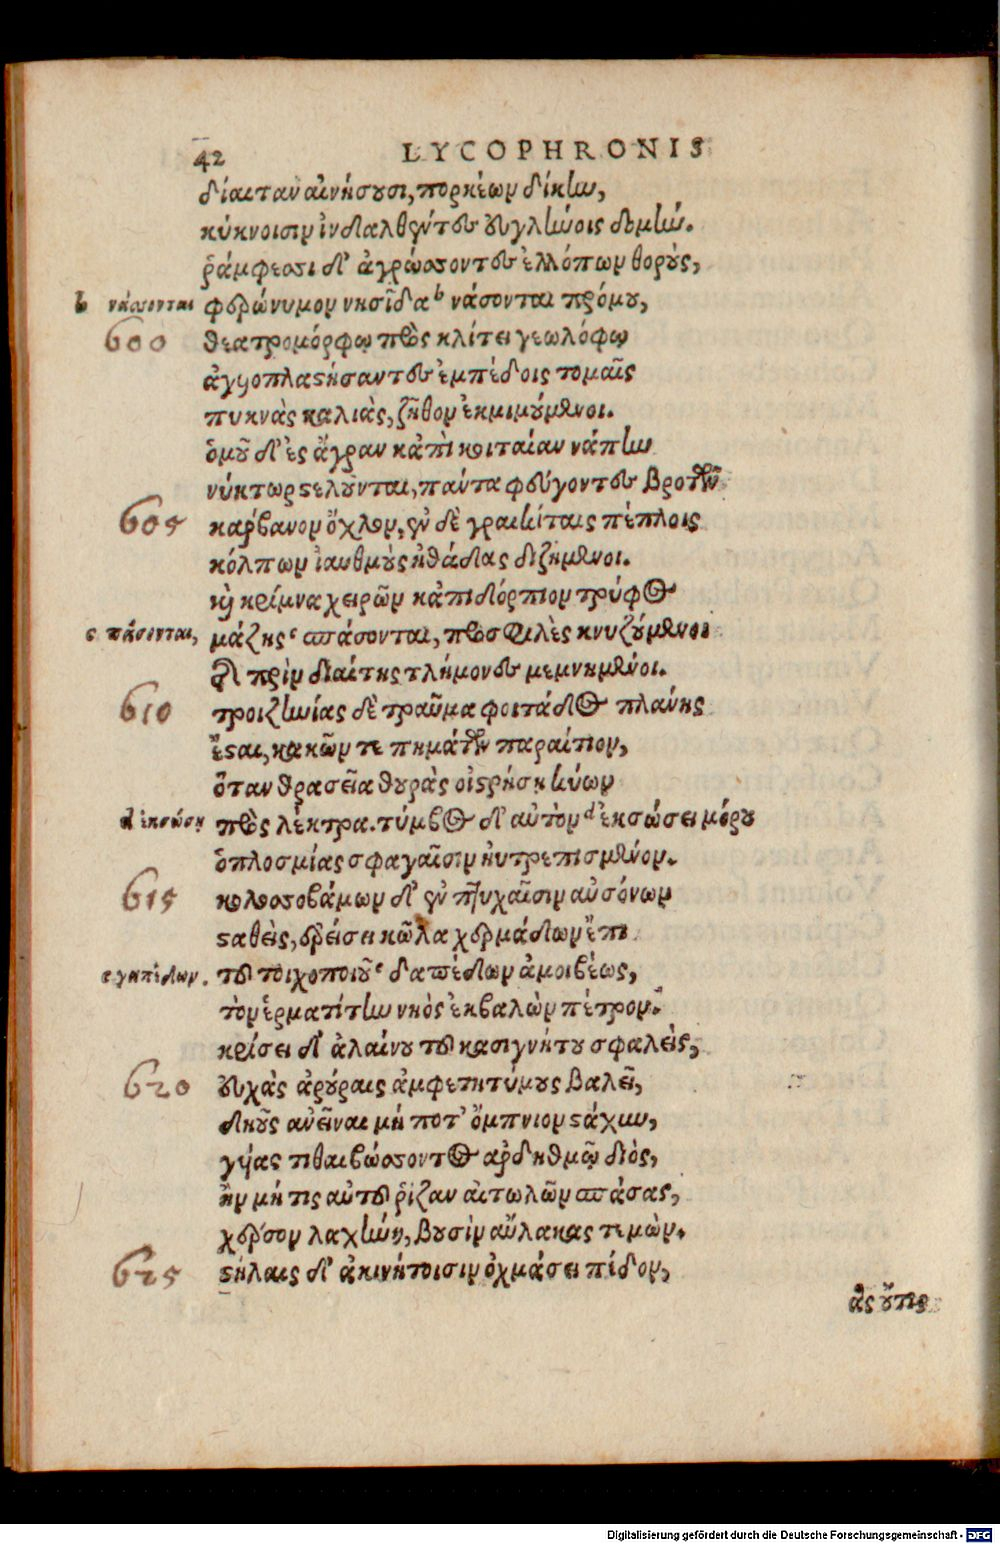 42 LYCOPHRONIS
δίαιταν αἰνήσουσι, πορκέων δίκην,
κύκνοισιν ἰνδαλθέντες εὐγλήνοις δομήν.
ῥάμφεσσι δ' ἀγρώσσοντες ἐλλόπων θορούς,
b νάσσονται φερώνυμον νησῖδα ᵇ νάσονται πρόμου,
600 θεατρομόρφῳ πρὸς κλίτει γεωλόφῳ
ἀγυιοπλαστήσαντες ἐμπέδοις τομαῖς
πυκνὰς καλιὰς, ζῆθον ἐκμιμούμενοι.
ὁμοῦ δ' ἐς ἄγραν κἀπὶ κοιταίαν νάπην
νύκτωρ στελοῦνται, πάντα φεύγοντες βροτῶν
605 κάρβανον ὄχλον, ἐν δὲ γραικίταις πέπλοις
κόλπων ἰαυθμοὺς ἠθάδας διζήμενοι.
καὶ κρίμνα χειρῶν κἀπιδόρπιον τρύφος
c πάσονται, μάζης ᶜ σπάσονται, προσφιλὲς κνυζούμενοι
τῆς πρὶν διαίτης τλήμονες μεμνημένοι.
610 τροιζηνίας δὲ τραῦμα φοιτάδος πλάνης
ἔσται, κακῶν τε πημάτων παραίτιον,
ὅταν θρασεῖα θουρὰς οἰστρήσῃ κύων
d ἐκσώσῃ πρὸς λέκτρα. τύμβος δ' αὐτὸν ᵈ ἐκσώσει μόρου
ὁπλοσμίας σφαγαῖσιν ηὐτρεπισμένον.
615 κολοσσοβάμων δ' ἐν πτυχαῖσιν αὐσόνων
σταθεὶς, ἐρείσει κῶλα χερμάδων ἔπι
e γαπέδων. τοῦ τοιχοποιοῦ ᵉ δαπέδων ἀμοιβέως,
τὸν ἑρματίτην νηὸς ἐκβαλὼν πέτρον.
κρίσει δ' ἀλαίνου τοῦ κασιγνήτου σφαλεὶς,
620 εὐχὰς ἀρούραις ἀμφετητύμους βαλεῖ,
δηοῦς ἀνεῖναι μή ποτ' ὄμπνιον στάχυν,
γύας τιθαιβώσσοντος ἀρδηθμῷ διὸς,
ἢν μή τις αὐτοῦ ῥίζαν αἰτωλῶν σπάσας,
χέρσον λαχήνῃ, βουσὶν αὔλακας τεμών.
625 στήλαις δ' ἀκινήτοισιν ὀχμάσει πέδον,
ἃς οὔτις
Digitalisierung gefördert durch die Deutsche Forschungsgemeinschaft - DFG